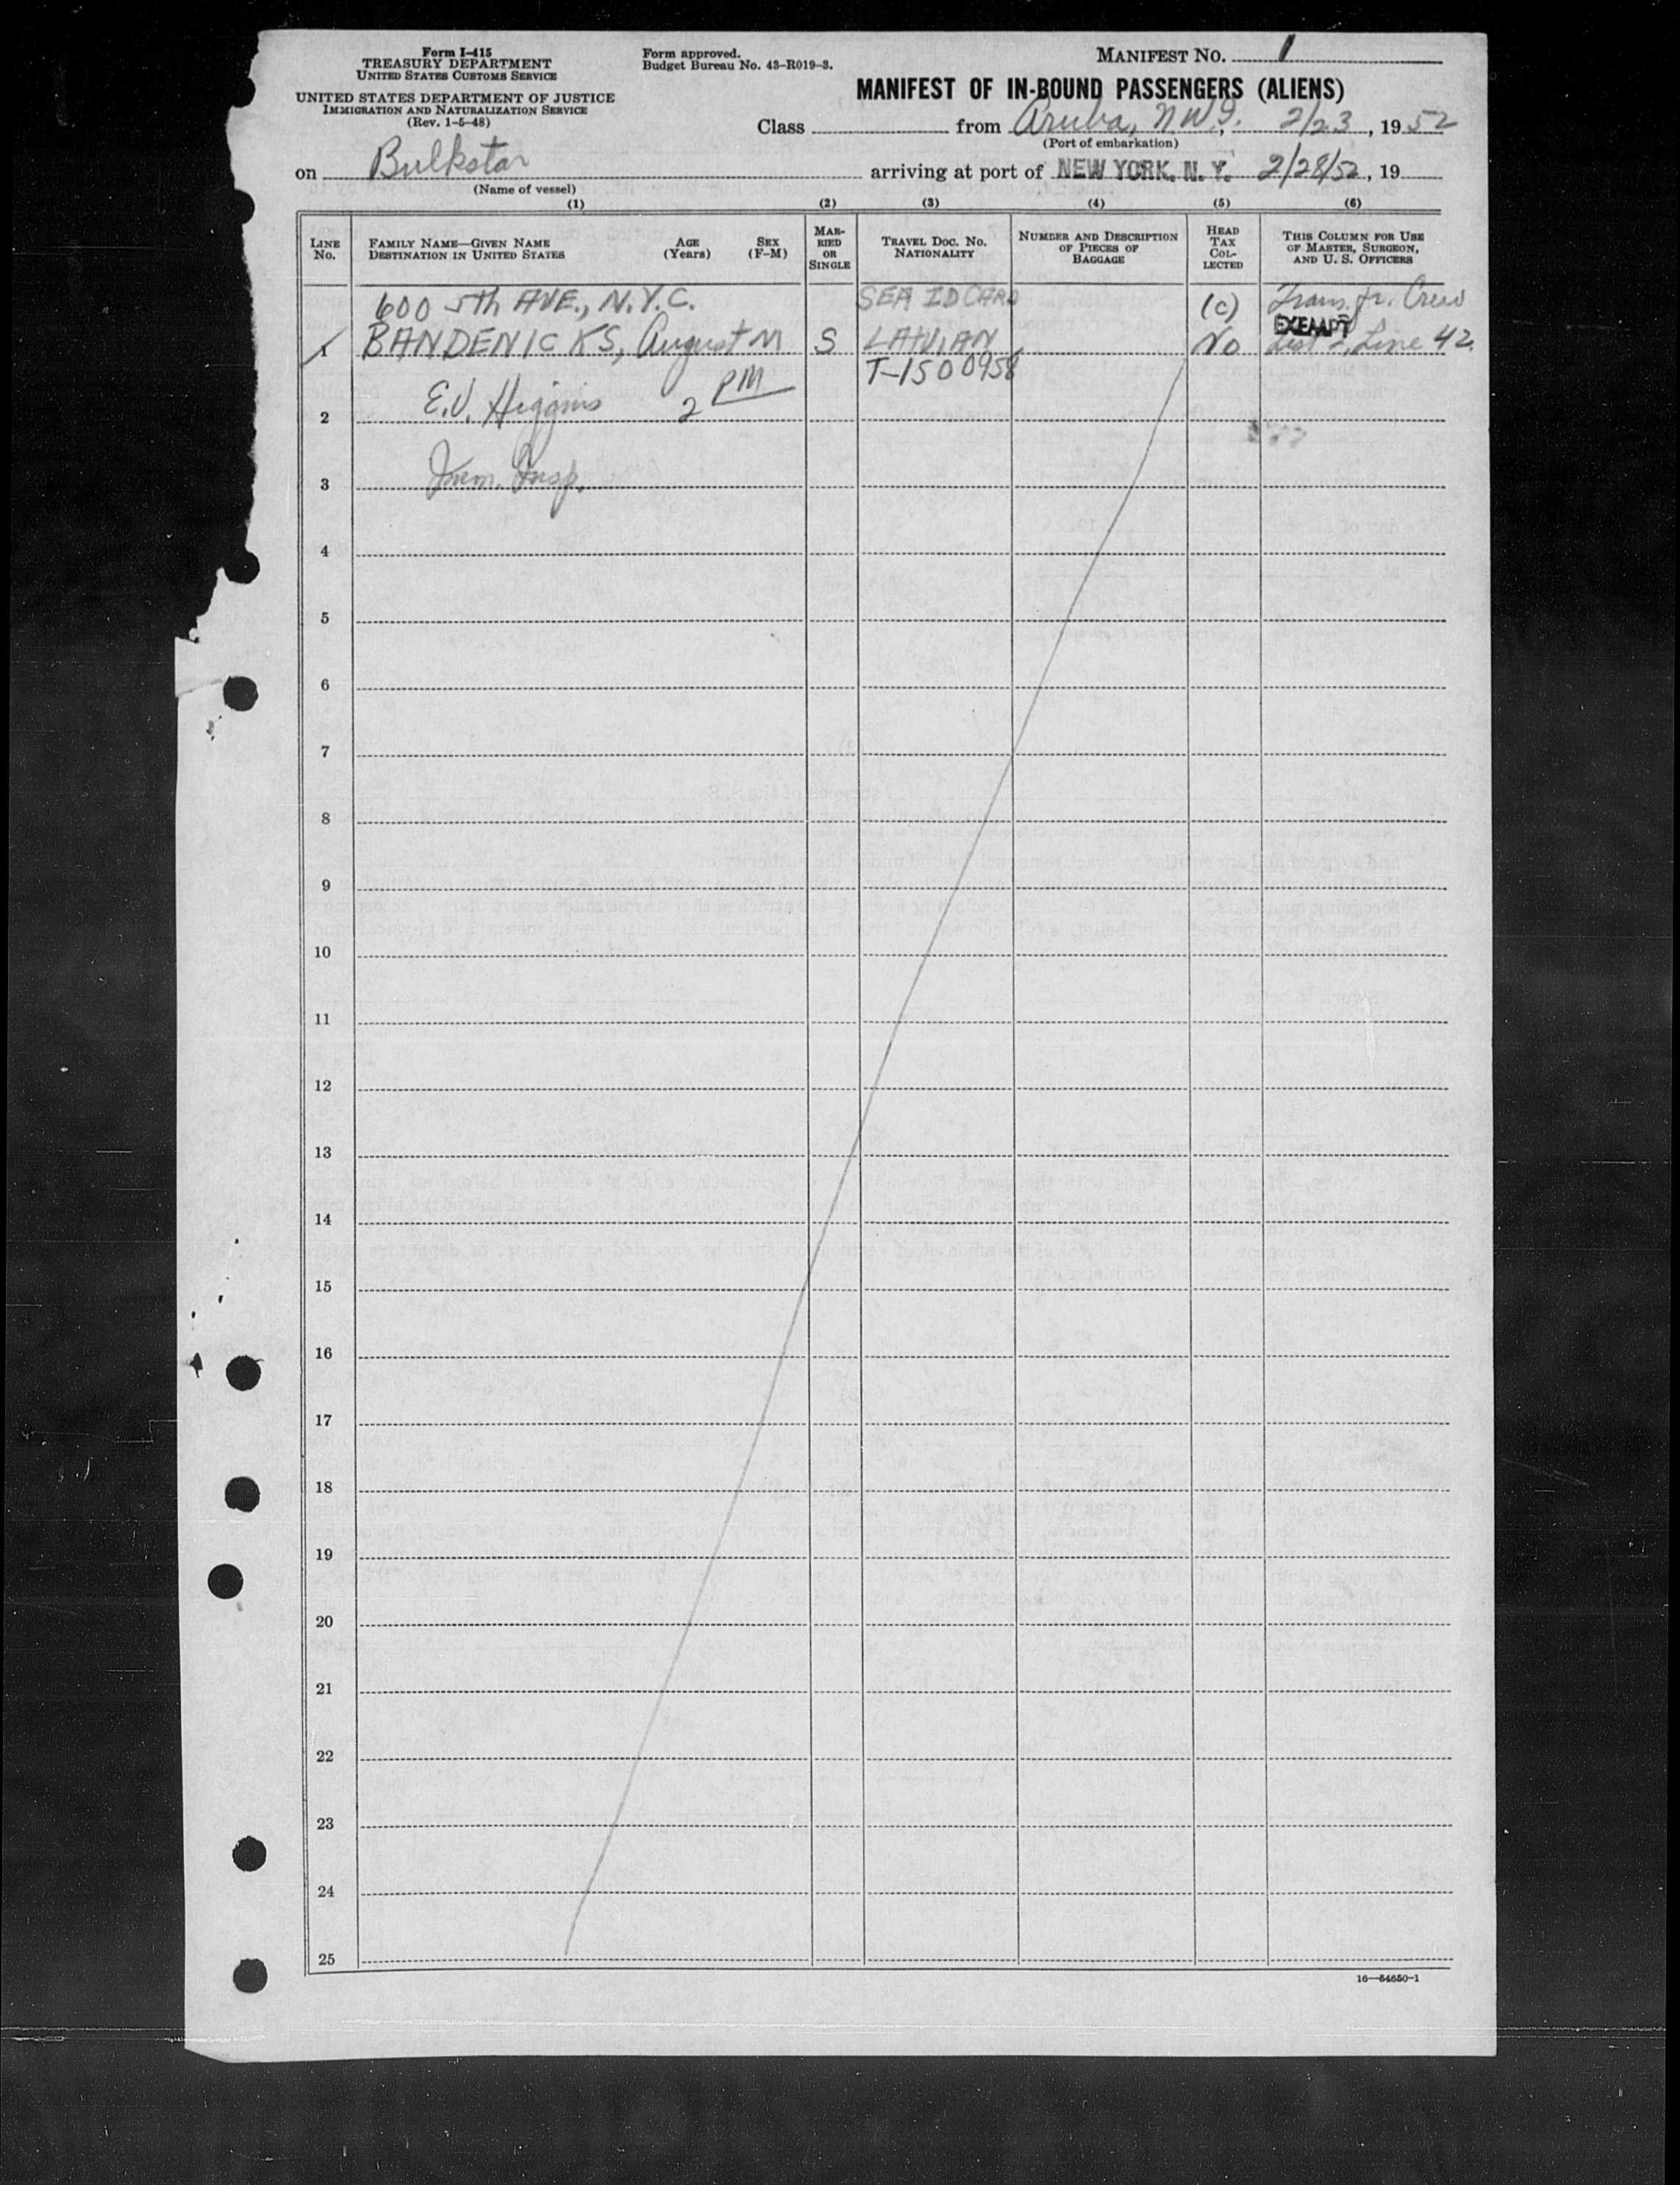 Form I-415
TREASURY DEPARTMENT
UNITED STATES CUSTOMS SERVICE
UNITED STATES DEPARTMENT OF JUSTICE
IMMIGRATION AND NATURALIZATION SERVICE
(Rev. 1-5-48)
Form approved.
Budget Bureau No. 43-R019-3.
MANIFEST NO. 1
MANIFEST OF IN-BOUND PASSENGERS (ALIENS)
Class from Aruba, N.W.I., 2/23, 1952
(Port of embarkation)
on Bulkstar arriving at port of NEW YORK, N. Y. 2/28/52, 19
(Name of vessel)
(1) (2) (3) (4) (5) (6)
LINE No. FAMILY NAME—GIVEN NAME DESTINATION IN UNITED STATES AGE (Years) SEX (F-M) MARRIED OR SINGLE TRAVEL DOC. NO. NATIONALITY NUMBER AND DESCRIPTION OF PIECES OF BAGGAGE HEAD TAX COLLECTED THIS COLUMN FOR USE OF MASTER, SURGEON, AND U. S. OFFICERS
600 5th AVE., N.Y.C. SEA ID CARD (C) Trans. fr. Crew
EXEMPT
1 BANDENICKS, August M S LATVIAN No List 2, Line 42
T-1500958
E.V. Higgins 2 PM
2
Imm. Insp.
3
4
5
6
7
8
9
10
11
12
13
14
15
16
17
18
19
20
21
22
23
24
25
16—54650-1